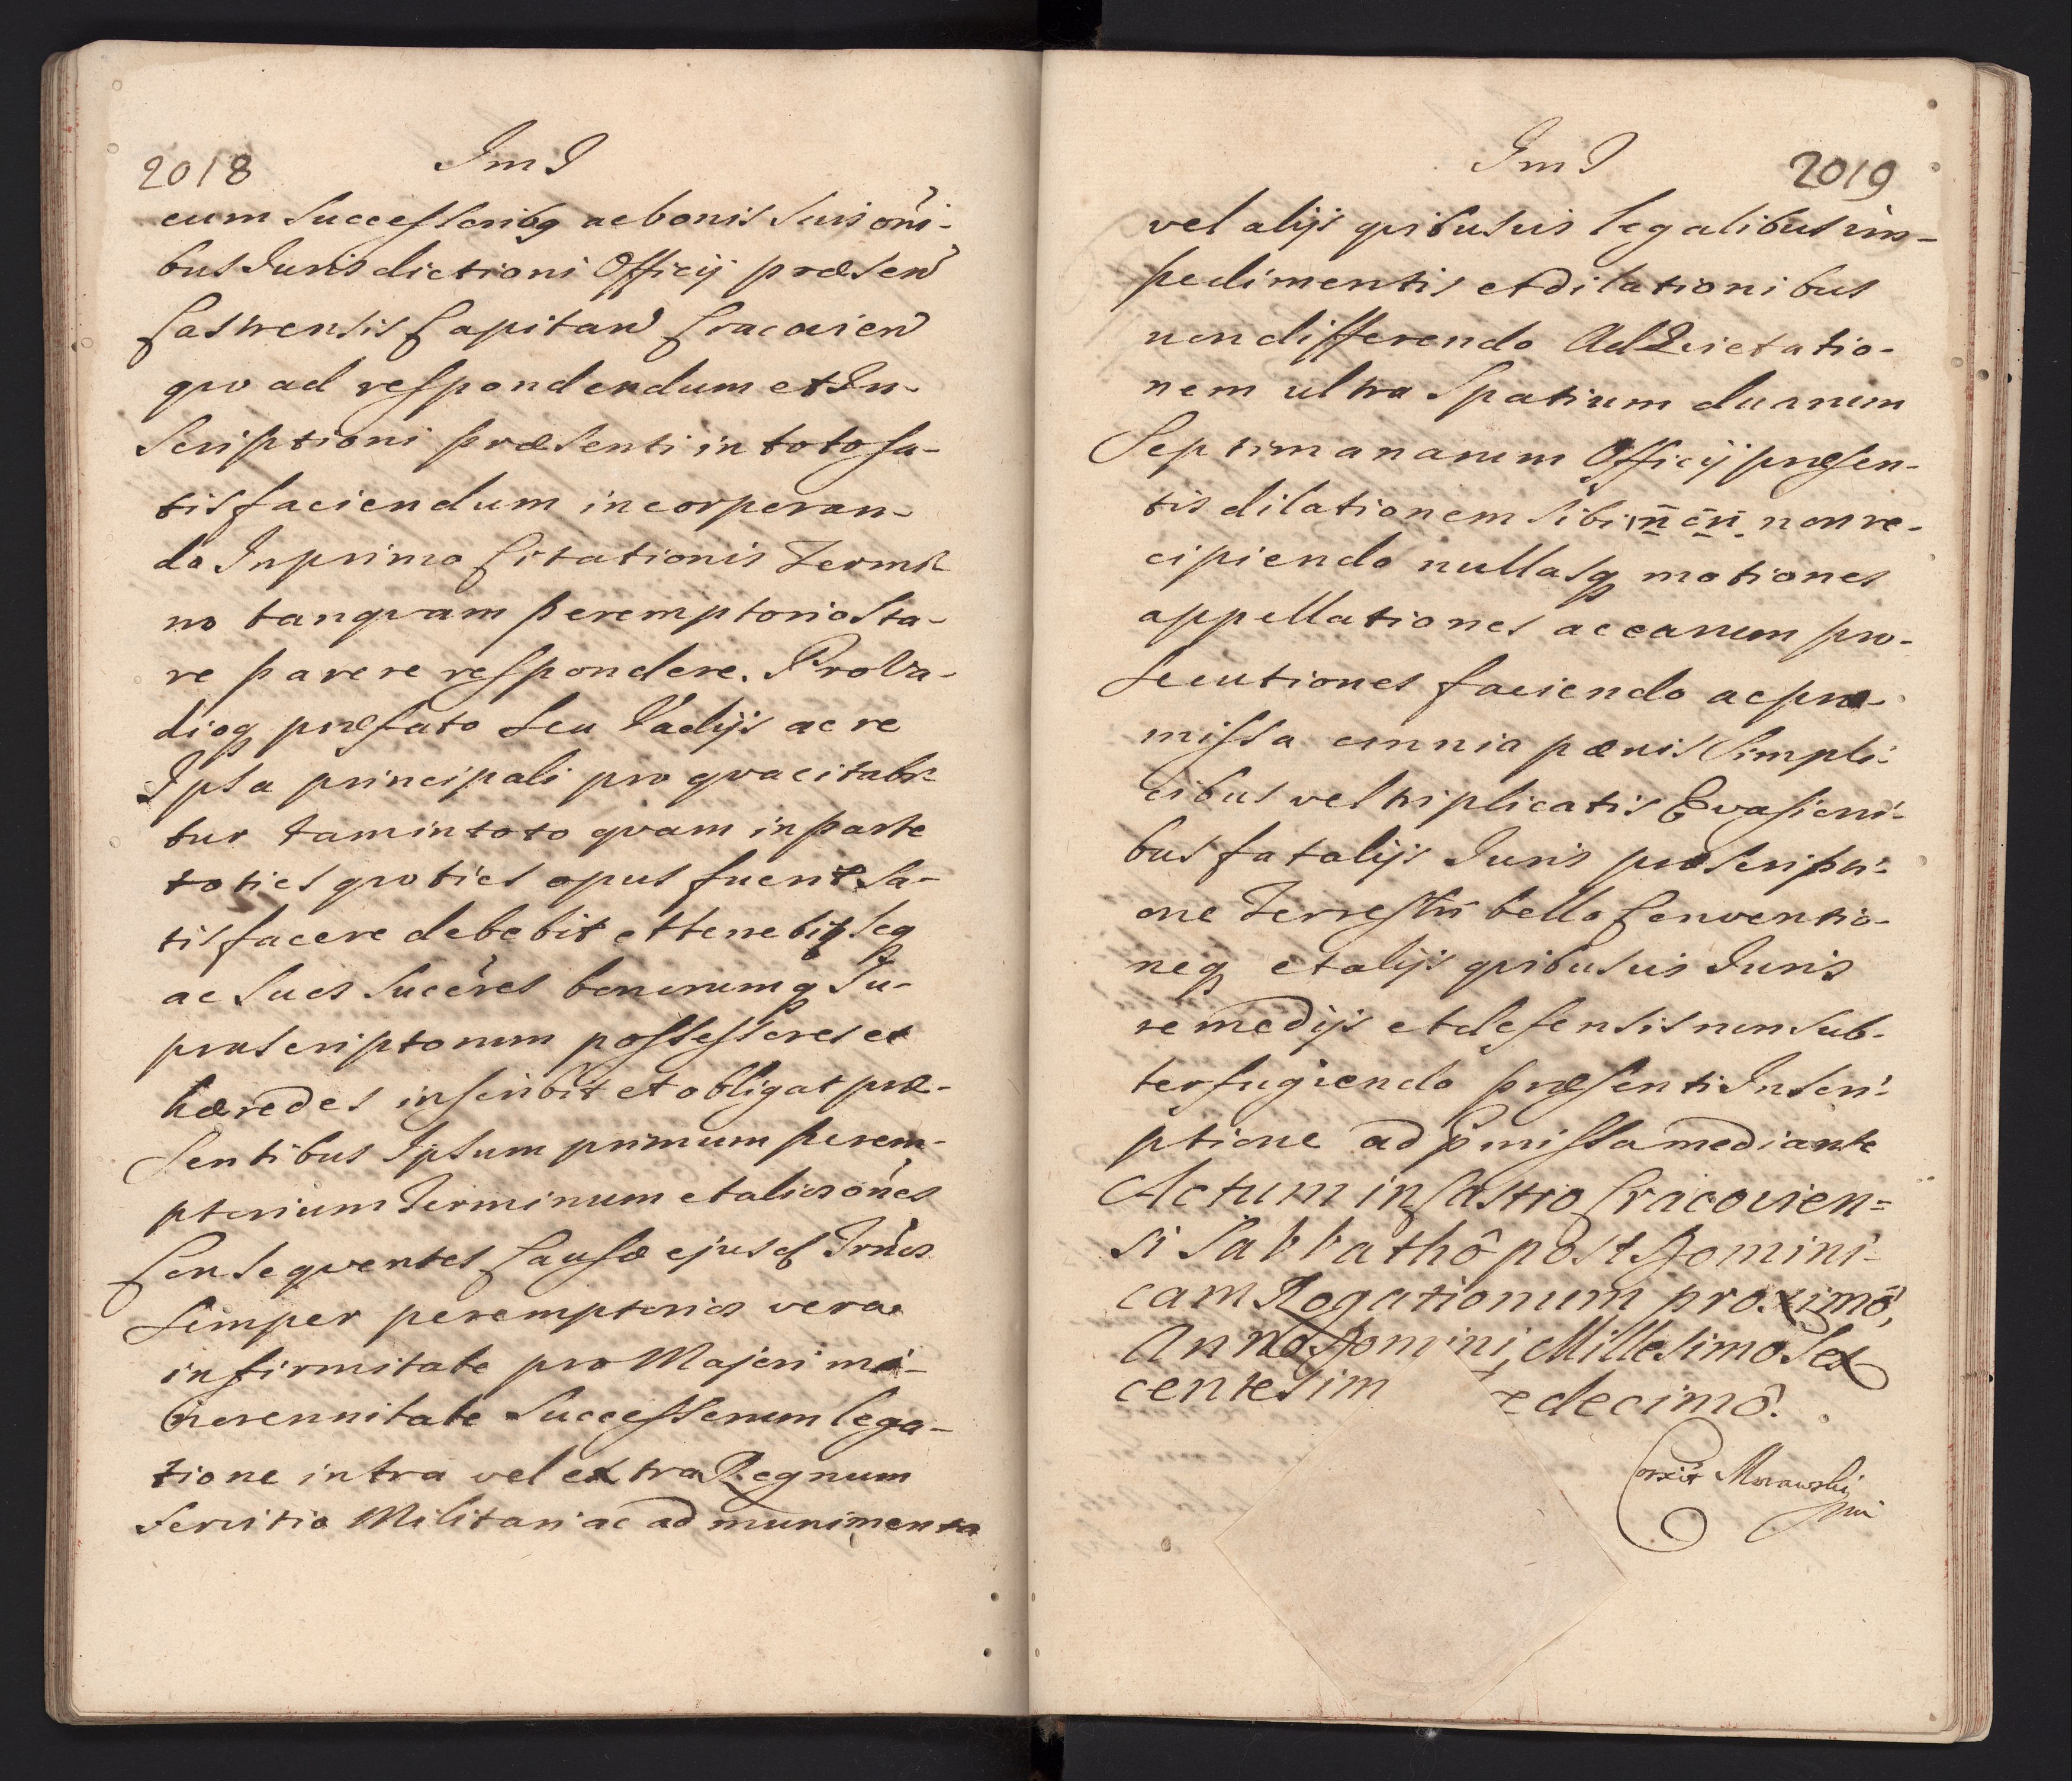 2018
ImJ
cum Successoribq ac bonis Suis oni-
bus Jurisdictioni Officij præsen
Castrensis Capitan Cracovien
qvo ad respondendum et In-
scriptioni præsenti in toto sa-
tisfaciendum incorporan-
do In primo Citationis Termi-
no tanqvam peremptorio sta-
re parere respondere. Pro Va-
dioq præfato seu Vadijs ac re
Ipsa principali pro qva citabi-
tur tam in toto qvam in parte
toties qvoties opus fuerit sa-
tisfacere debebit et tenebitq seq
ac suos succeres bonorumq Su-
prascriptorum possessores et
hæredes inscribit et obligat præ-
sentibus Ipsum primum perem-
ptorium Terminum et alios ones
Conseqventes Causæ ejusd Trnos
semper peremptorios vera
infirmitate pro Majori mi-
norennitate Successorum lega-
tione intra vel extra Regnum
servitio Militari ac ad munimenta
ImJ
2019
vel alijs qvibusvis legalibus im-
pedimentis et dilationibus
non differendo Ad Qvietatio-
nem ultra Spatium duarum
Septimanarum Officij præsen-
tis dilationem sibi n̄ c̄n̄. non re-
cipiendo nullasq motiones
appellationes ac earum pro-
secutiones faciendo ac præ-
missa omnia pænis simpli-
cibus vel triplicatis Evasioni-
bus fatalijs Juris proscripti-
one Terrestri bello Conventio-
neq et alijs qvibusvis Juris
remedijs et defensis non sub-
terfugiendo præsenti Inscri-
ptione ad pmissa mediante
Actum in Castro Cracovien=
si Sabbathô post Domini-
cam Rogationum proximô,
Anno Domini Millesimo Sex
centesim edecimô.
Corxit Morawski
mp